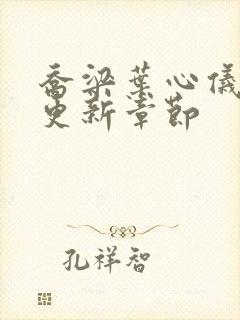 乔梁葉心儀
更新章節
孔祥智